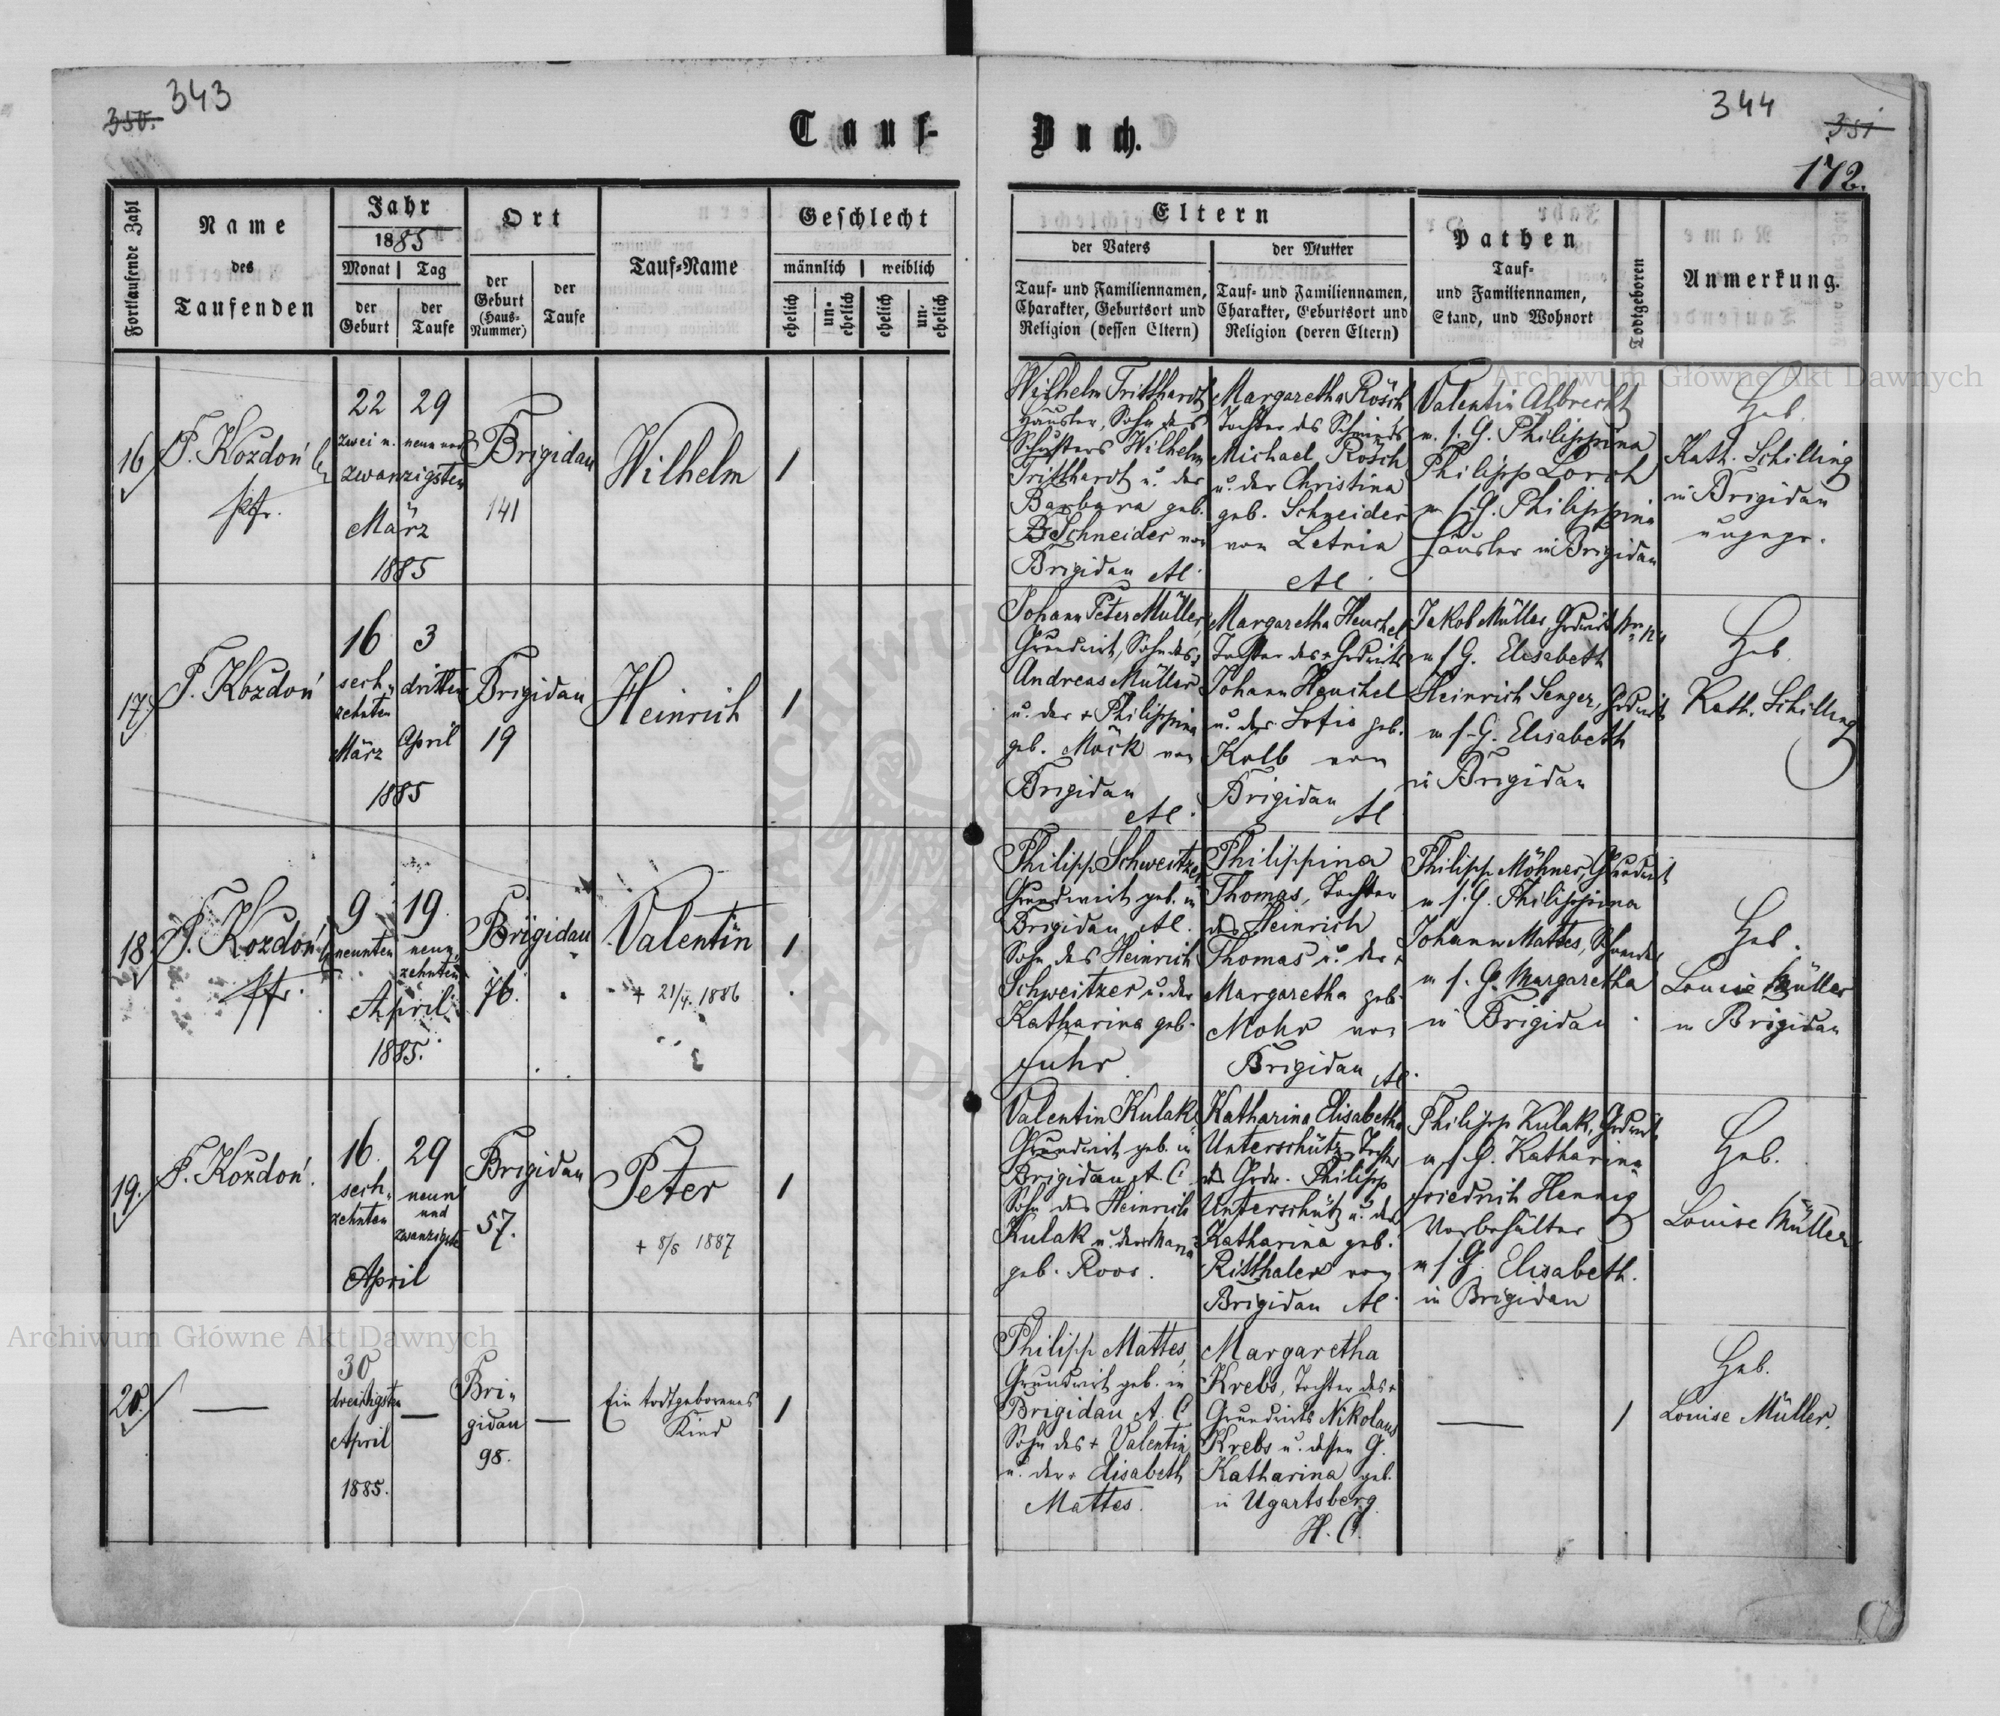 343
350.
344
351
172.
Tauf-
Buch.
Fortlaufende Zahl
Name
des
Taufenden
Jahr
1885
Monat | Tag
der Geburt
der Taufe
Ort
der Geburt (Haus-Nummer)
der Taufe
Tauf-Name
Geschlecht
männlich | weiblich
ehelich
un-ehelich
ehelich
un-ehelich
Eltern
der Vaters
der Mutter
Tauf- und Familiennamen,
Charakter, Geburtsort und
Religion (dessen Eltern)
Tauf- und Familiennamen,
Charakter, Geburtsort und
Religion (deren Eltern)
Pathen
Tauf-
und Familiennamen,
Stand, und Wohnort
Todtgeboren
Anmerkung.
16
F. Kozdoń
Pfr.
22 29
zwei u. neun und
zwanzigsten
März
1885
Brigidau
141
Wilhelm
1
Wilhelm Tritthardt
Häusler, Sohn des
Schusters Wilhelm
Tritthardt u. der
Barbara geb.
Schneider von
Brigidau AC.
Margaretha Rösch
Tochter des Schmieds
Michael Rösch
u. der Christina
geb. Schneider
von Letnia
AC.
Valentin Albrecht
m. s. G. Philippina
Philipp Lorch
m s. G. Philippina
Häusler in Brigidau
Heb.
Kath. Schilling
in Brigidau
ungepr.
17
F. Kozdoń
16 3
sech- dritten
zehnten
März April
1885
Brigidau
19
Heinrich
1
Johann Peter Müller,
Grundwirt, Sohn des
Andreas Müller
u. der + Philippina
geb. Möck von
Brigidau
AC.
Margaretha Heuchel
Tochter des + Grdwirts
Johann Heuchel
u. der Sofia geb.
Kolb von
Brigidau
AC
Jakob Müller, Grdwirt
m s G. Elisabeth
Heinrich Senger, Grdwirt
m s. G. Elisabeth
in Brigidau
Heb.
Kath. Schilling
18
F. Kozdoń
Pfr.
9 19
neunten neun-
zehnten
April
1885.
Brigidau
76.
Valentin
+ 21/4. 1886
1
Philipp Schweitzer
Grundwirt geb. in
Brigidau AC.
Sohn des Heinrich
Schweitzer u. der
Katharina geb.
Fuhr.
Philippina
Thomas, Tochter
des Heinrich
Thomas u. der +
Margaretha geb.
Mohr von
Brigidau AC.
Philipp Möhner, Grundwirt
m s. G. Philippina
Johann Mattes,
m s. G. Margaretha
in Brigidau
Heb.
Louise Müller
in Brigidau
19.
F. Kozdoń.
16. 29
sech- neun
zehnten und
zwanzigste
April
Brigidau
57.
Peter
+ 8/8 1887
1
Valentin Kulak
Grundwirt geb. in
Brigidau A. C.
Sohn des Heinrich
Kulak u. der Maria
geb. Roos.
Katharina Elisabetha
Unterschütz, Tochter
des Grdw. Philipp
Unterschütz u. der
Katharina geb.
Ritthaler von
Brigidau AC
Philipp Kulak, Grdwirt,
m s. G. Katharina
Friedrich Hennig
Vorbehälter
m s G. Elisabeth.
in Brigidau
Heb.
Louise Müller
20.
—
30
dreißigsten
April
1885.
—
Bri-
gidau
98.
—
Ein todtgeborenes
Kind
1
Philipp Mattes,
Grundwirt geb. in
Brigidau A. C.
Sohn des + Valentin
u. der + Elisabeth
Mattes.
Margaretha
Krebs, Tochter des +
Grundwirts Nikolaus
Krebs u. dessen G.
Katharina geb.
in Ugartsberg.
H. C.
—
1
Heb.
Louise Müller.
Archiwum Główne Akt Dawnych
Archiwum Główne Akt Dawnych